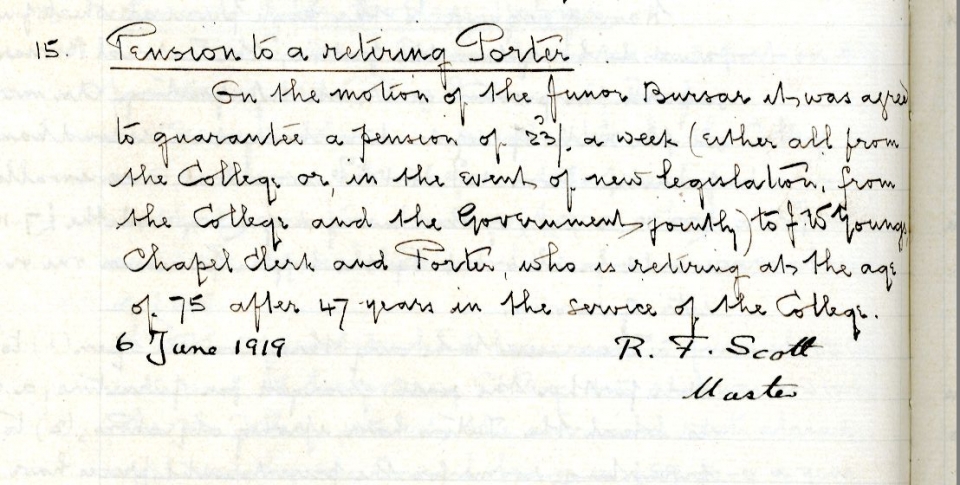 15. Pension to a retiring Porter
On the motion of the Junior Bursar it was agreed
to guarantee a pension of 23/. a week (either all from
the College or, in the event of new legislation, from
the College and the Government jointly) to J W Young,
Chapel Clerk and Porter, who is retiring at the age
of 75 after 47 years in the service of the College.
6 June 1919 R. F. Scott
Master